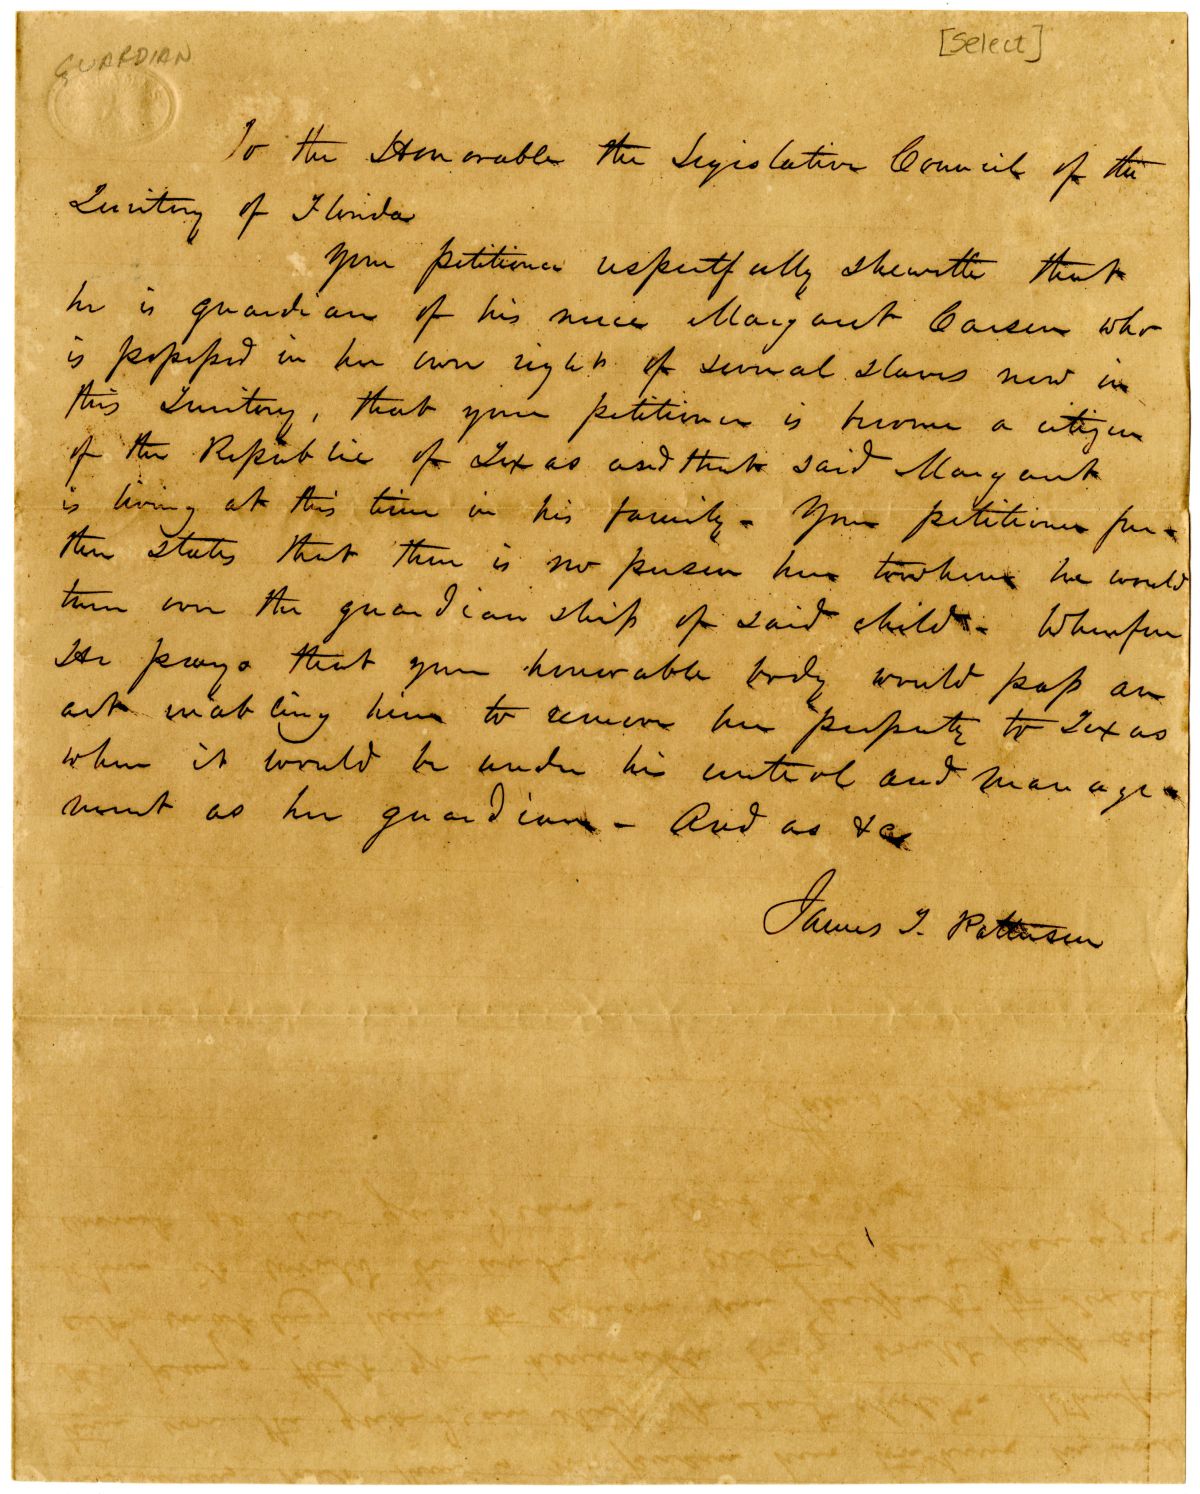 GUARDIAN
[Select]
To the Honorable the Legislative Council of the
Territory of Florida
Your petitioner respectfully sheweth that
he is guardian of his niece Margaret Carsen who
is possessed in her own right of several slaves now in
this Territory, that your petitioner is become a citizen
of the Republic of Texas and that said Margaret
is living at this time in his family - Your petitioner fur-
ther states that there is no person here to whom he would
turn over the guardianship of said child - Wherefore
He prays that your honorable body would pass an
act enabling him to remove her property to Texas
where it would be under his control and manage-
ment as her guardian - And as &c
James T. Patterson